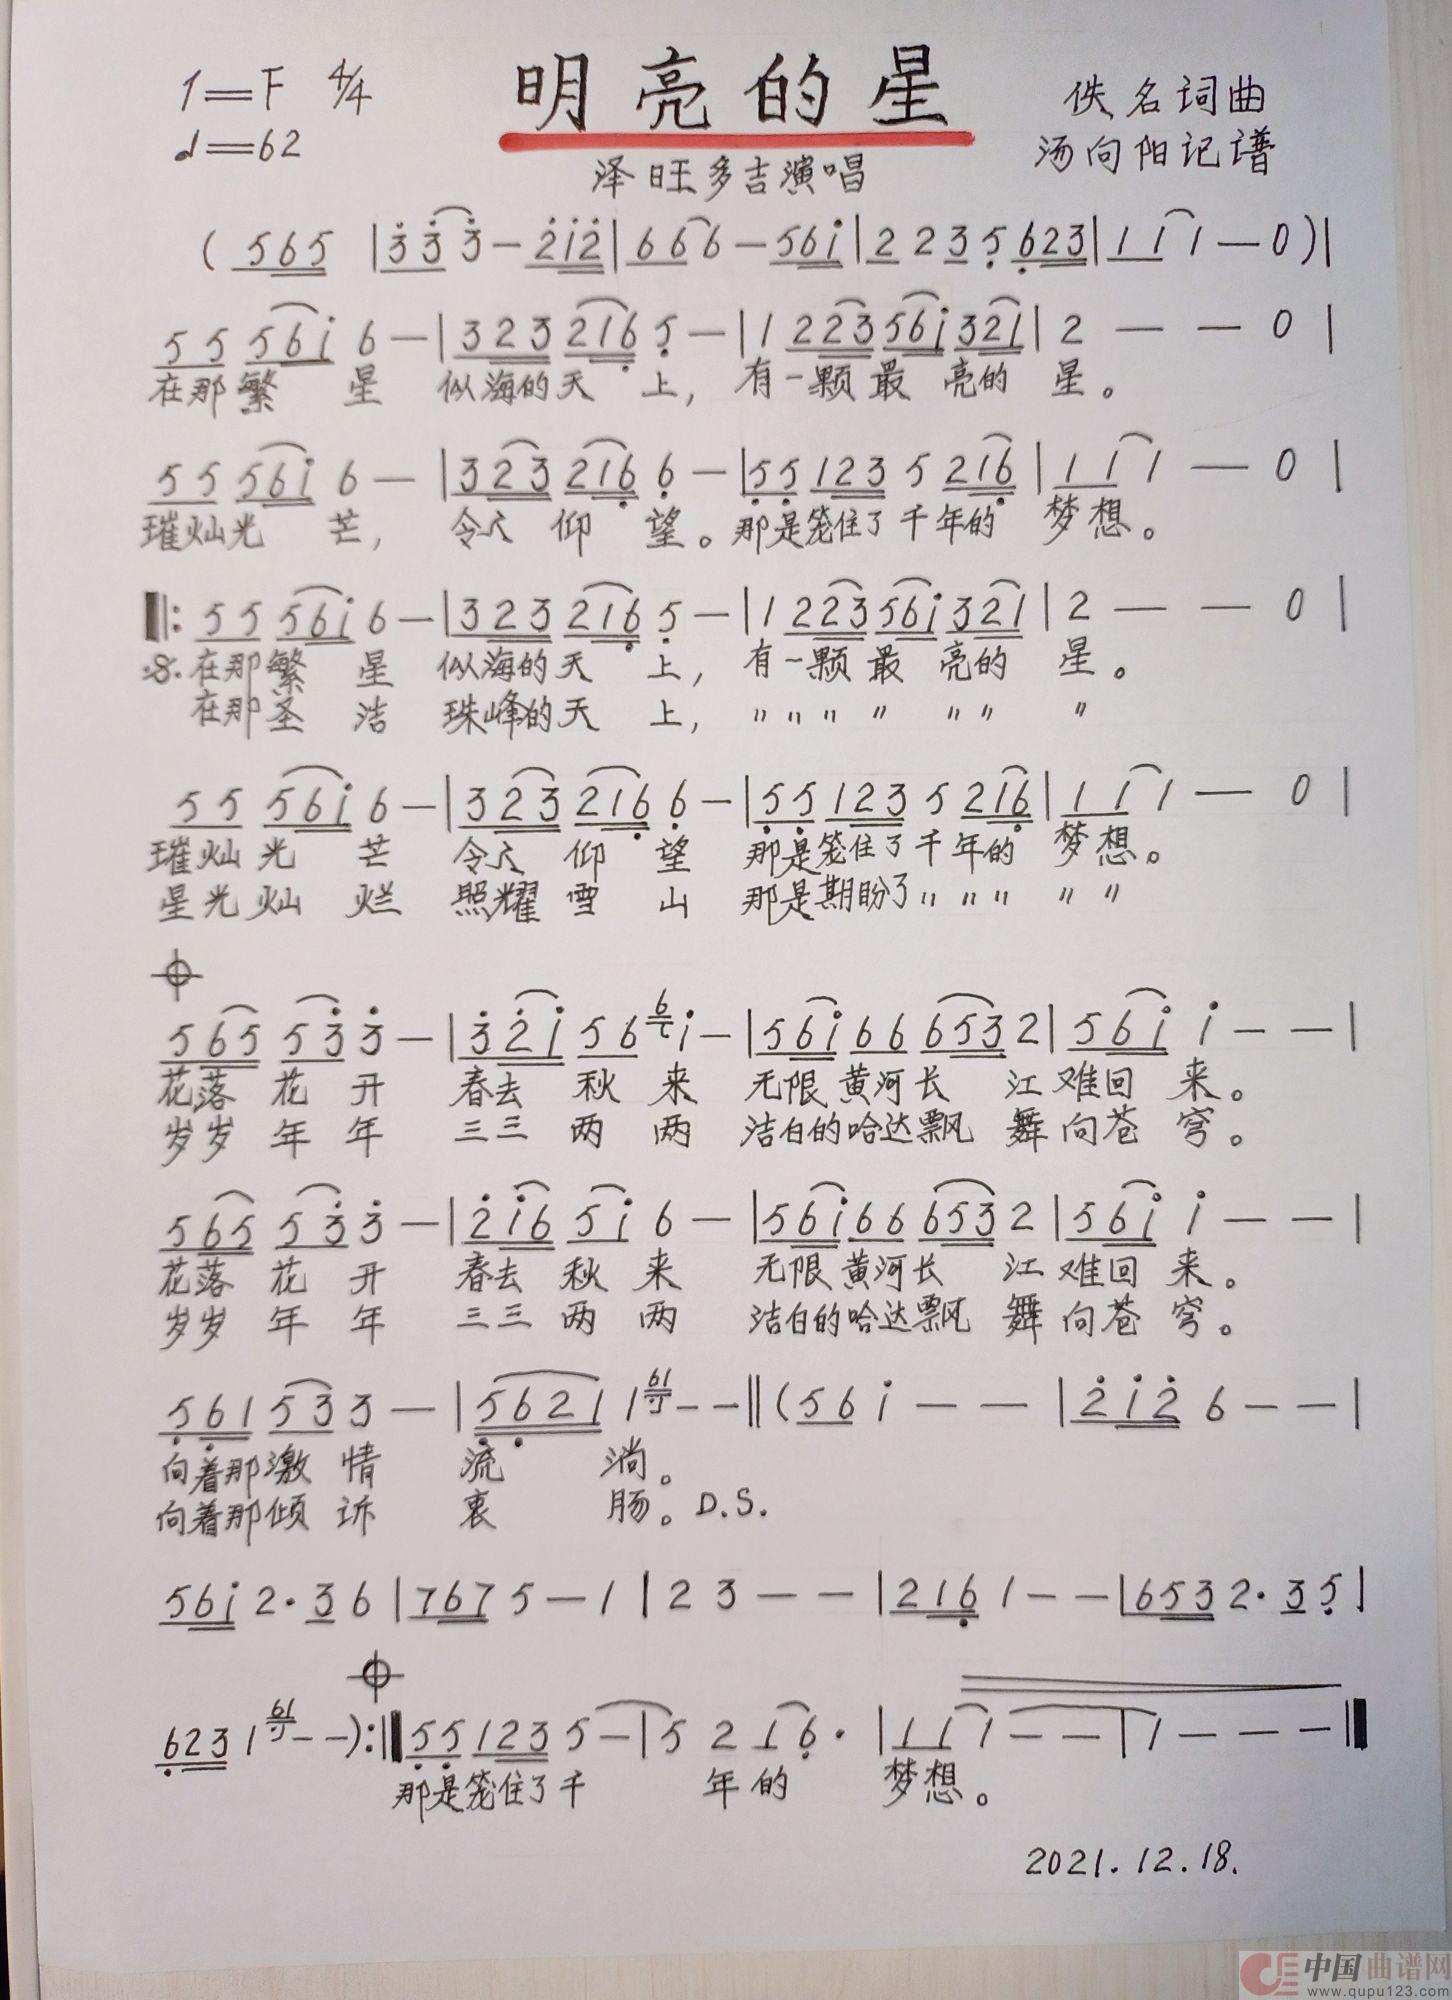 1=F 4/4 明亮的星 佚名词曲
♩=62 汤向阳记谱
泽旺多吉演唱
( 5 6 5 | 3̇ 3̇ 3̇ — 2̇ 1̇ 2̇ | 6 6 6 — 5 6 1̇ | 2 2 3 5̣ 6̣ 2 3 | 1 1 1 — 0 ) |
5 5 5 6 1̇ 6 — | 3 2 3 2 1 6̣ 5̣ — | 1 2 2 3 5 6 1̇ 3 2 1 | 2 — — 0 |
在那繁 星 似海的天 上, 有一颗最 亮的 星。
5 5 5 6 1̇ 6 — | 3 2 3 2 1 6̣ 6̣ — | 5̣ 5̣ 1 2 3 5 2 1 6̣ | 1 1 1 — 0 |
璀灿光 芒, 令人 仰 望。那是笼住了千年的 梦想。
‖: 5 5 5 6 1̇ 6 — | 3 2 3 2 1 6̣ 5̣ — | 1 2 2 3 5 6 1̇ 3 2 1 | 2 — — 0 |
·S· 在那繁 星 似海的天 上, 有一颗最 亮的 星。
在那圣 洁 珠峰的天 上, 〃 〃 〃 〃 〃 〃 〃
5 5 5 6 1̇ 6 — | 3 2 3 2 1 6̣ 6̣ — | 5̣ 5̣ 1 2 3 5 2 1 6̣ | 1 1 1 — 0 |
璀灿光 芒 令人 仰 望 那是笼住了千年的 梦想。
星光灿 烂 照耀雪 山 那是期盼了〃 〃 〃 〃 〃
5 6 5 5 3̇ 3̇ — | 3̇ 2̇ 1̇ 5 6 6 1̇ — | 5 6 1̇ 6 6 6 5 3 2 | 5 6 1̇ 1̇ — — |
花落 花 开 春去 秋 来 无限黄河长 江难回 来。
岁岁 年 年 三三 两 两 洁白的哈达飘 舞向苍 穹。
5 6 5 5 3̇ 3̇ — | 2̇ 1̇ 6 5 1̇ 6 — | 5 6 1̇ 6 6 6 5 3 2 | 5 6 1̇ 1̇ — — |
花落 花 开 春去 秋 来 无限黄河长 江难回 来。
岁岁 年 年 三三 两 两 洁白的哈达飘 舞向苍 穹。
5̣ 6̣ 1 5 3 3 — | 5̣ 6̣ 2 1 1 61 — — ‖ ( 5 6 1̇ — — | 2̇ 1̇ 2̇ 6 — — |
向着那激 情 流 淌。
向着那倾 诉 衷 肠。D.S.
5 6 1̇ 2 · 3 6 | 7 6 7 5 — 1 | 2 3 — — | 2 1 6̣ 1 — — | 6 5 3 2 · 3 5̣ |
6̣ 2 3 1 61 — — ) :‖ 5̣ 5̣ 1 2 3 5 — | 5 2 1 6̣ · | 1 1 1 — — | 1 — — — ‖
那是笼住了千 年的 梦想。
2021.12.18.
中国曲谱网
www.qupu123.com